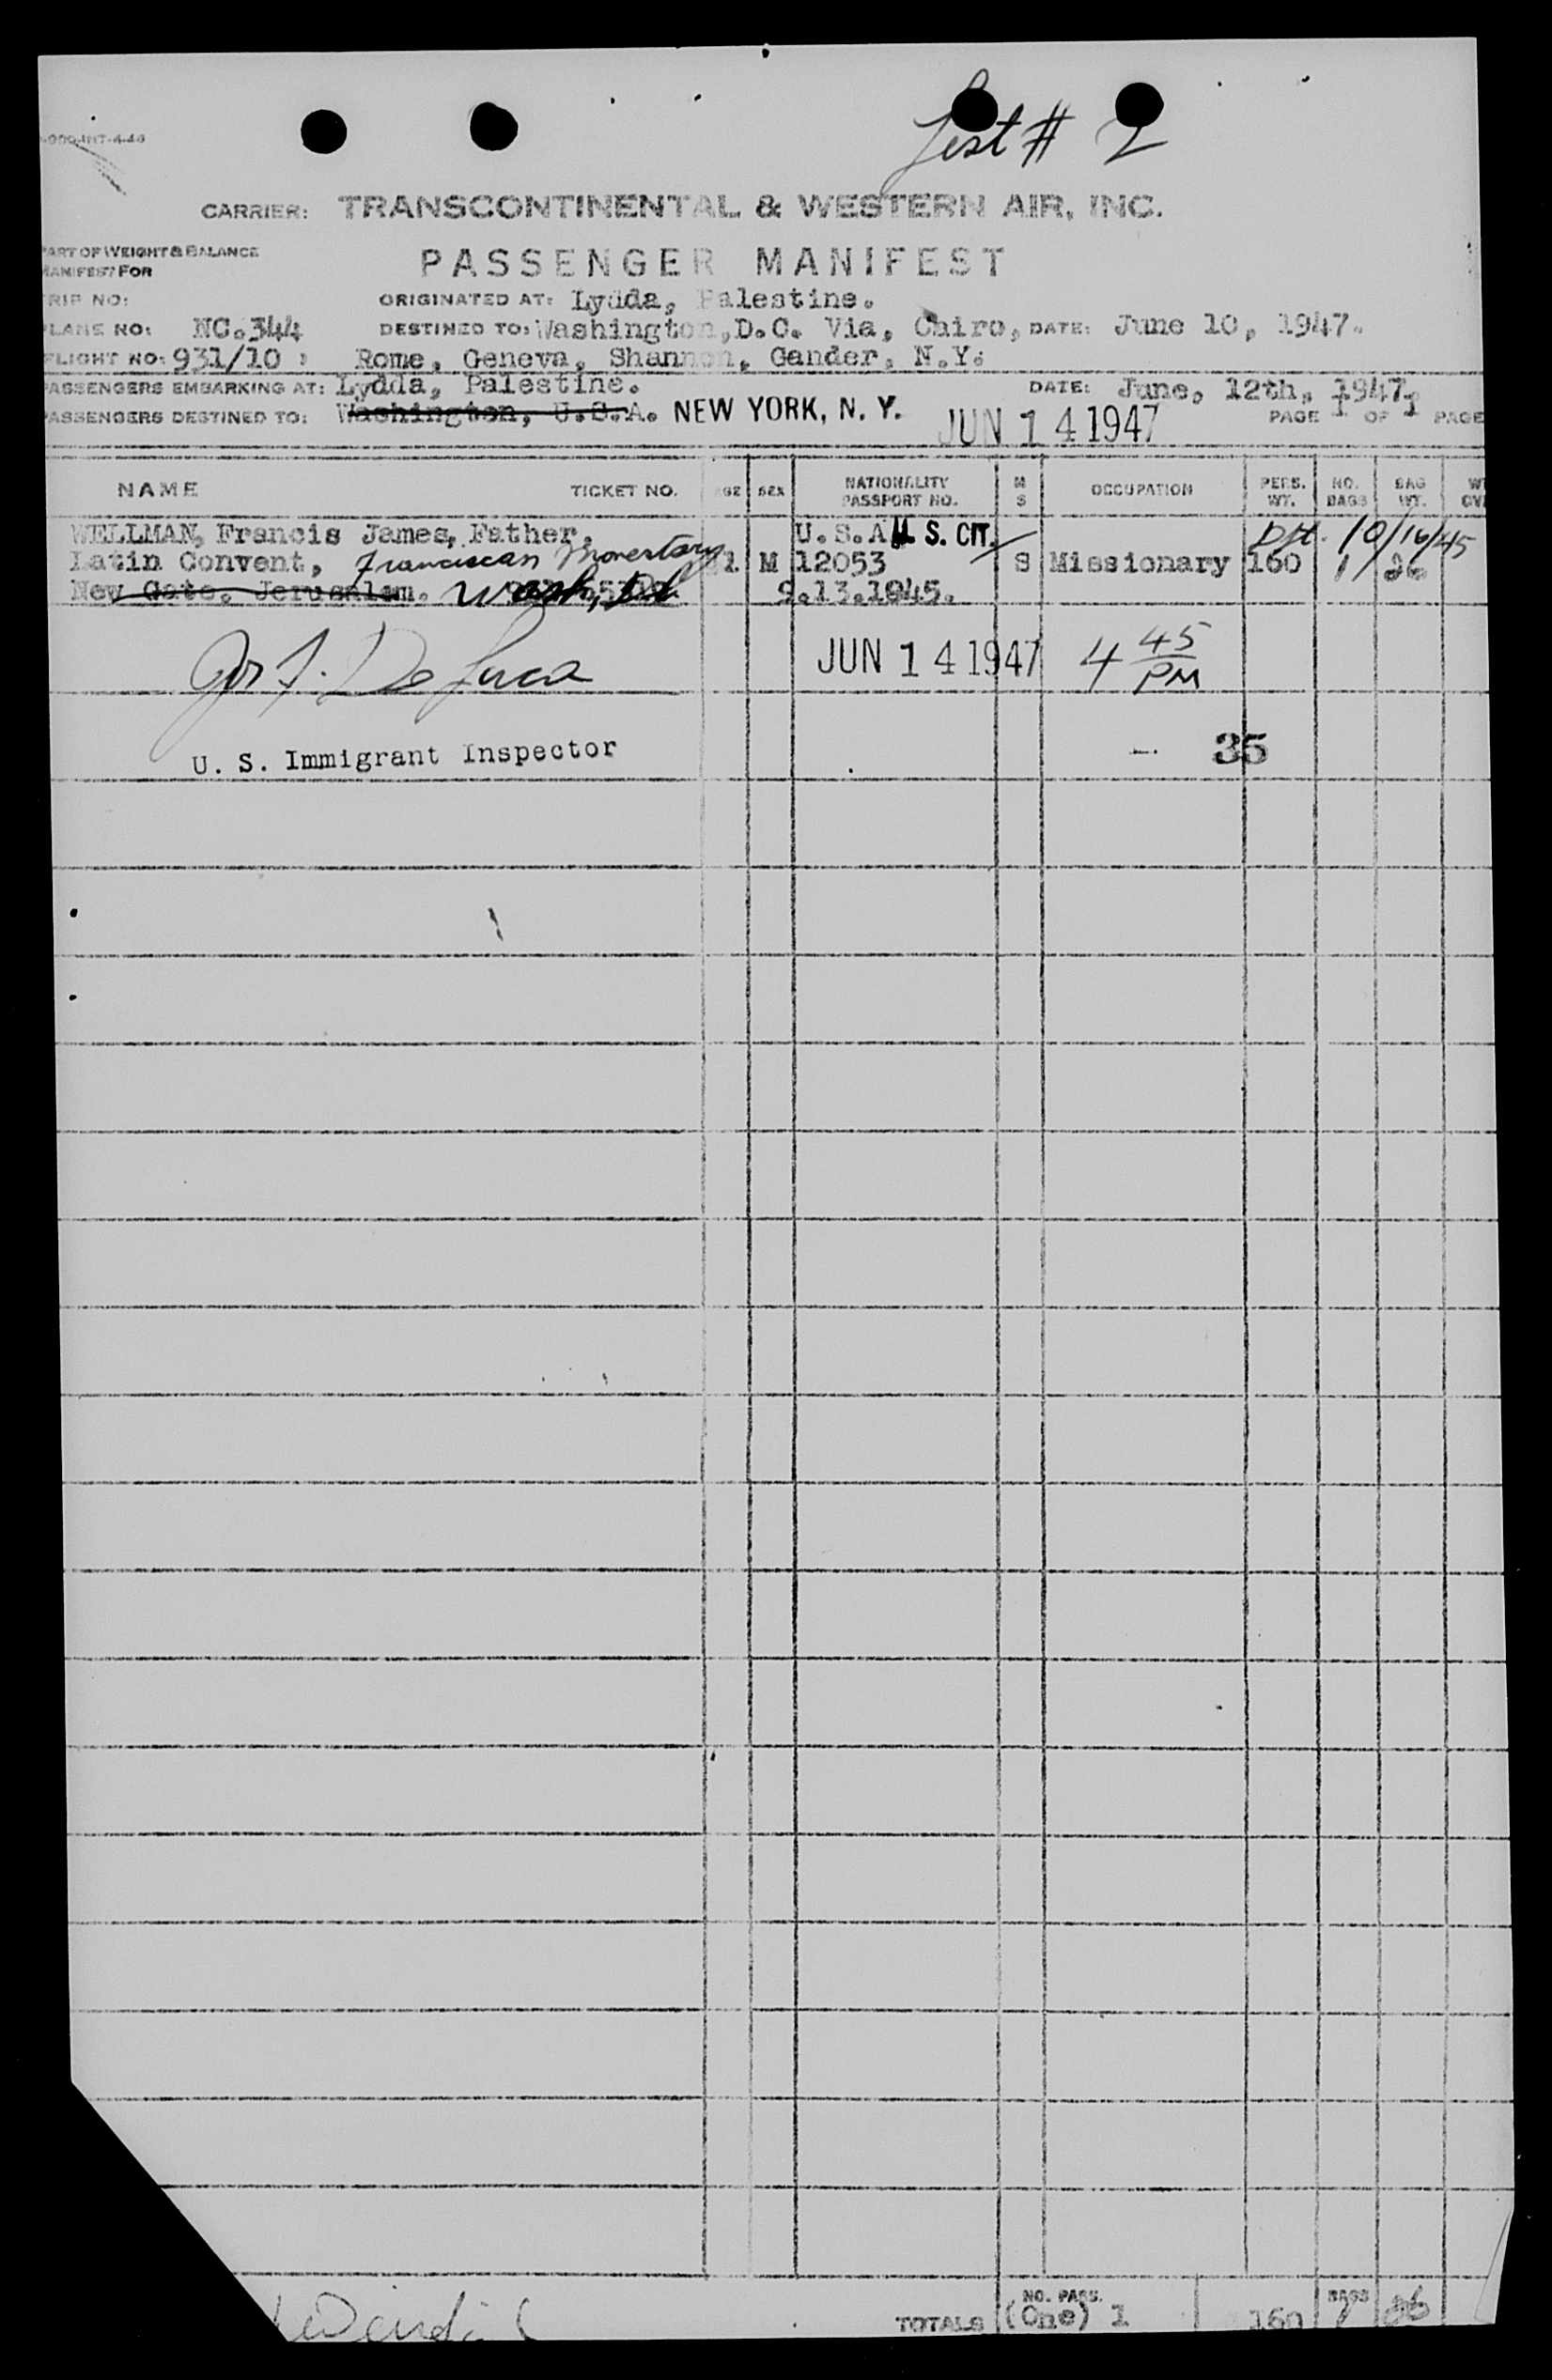 List # 2
CARRIER: TRANSCONTINENTAL & WESTERN AIR, INC.
PART OF WEIGHT & BALANCE
MANIFEST FOR
PASSENGER MANIFEST
TRIP NO:
ORIGINATED AT: Lydda, Palestine.
PLANE NO: NC.344
DESTINED TO: Washington, D.C. Via, Cairo, DATE: June 10, 1947.
FLIGHT NO: 931/10 Rome, Geneva, Shannon, Gander, N.Y.
PASSENGERS EMBARKING AT: Lydda, Palestine. DATE: June, 12th, 1947.
PASSENGERS DESTINED TO: Washington, U.S.A. NEW YORK, N. Y. JUN 14 1947 PAGE 1 OF 1 PAGE
NAME TICKET NO. AGE SEX NATIONALITY PASSPORT NO. M S OCCUPATION PERS. WT. NO. BAGS BAG WT.
WELLMAN, Francis James, Father. U.S.A. U. S. CIT. 10/16/45
Latin Convent, Franciscan Monastary M 12053 S Missionary 160 1 26
New Gate, Jerusalem. Wash, 9.13.1945.
Jos. F. De Luca JUN 14 1947 4 45 PM
U. S. Immigrant Inspector 35
TOTALS NO. PASS. (One) 1 160 BAGS 1 26